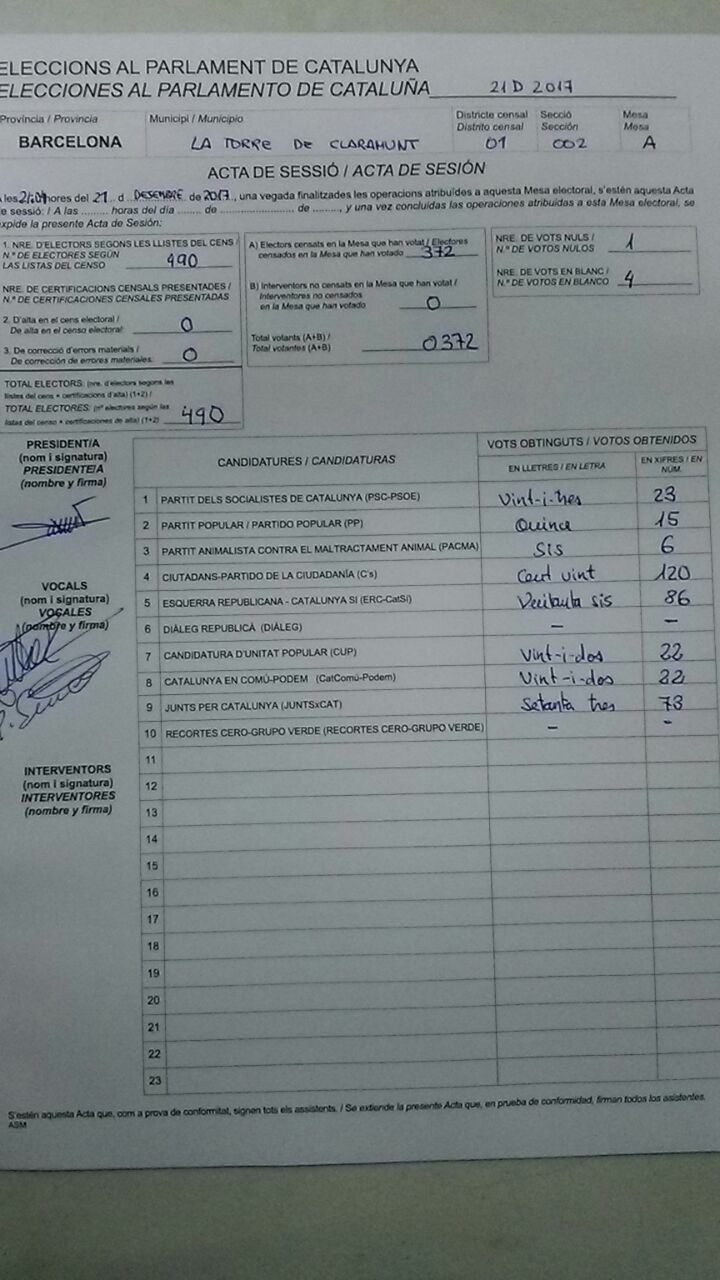 ELECCIONS AL PARLAMENT DE CATALUNYA
ELECCIONES AL PARLAMENTO DE CATALUÑA 21 D 2017
Província / Provincia Municipi / Municipio Districte censal Secció Mesa
Distrito censal Sección Mesa
BARCELONA LA TORRE DE CLARAMUNT 01 002 A
ACTA DE SESSIÓ / ACTA DE SESIÓN
A les hores del 21 d DESEMBRE de 2017, una vegada finalitzades les operacions atribuïdes a aquesta Mesa electoral, s'estén aquesta Acta
de sessió: / A las ......... horas del día ....... de ...................... de ........, y una vez concluidas las operaciones atribuidas a esta Mesa electoral, se
expide la presente Acta de Sesión:
1. NRE. D'ELECTORS SEGONS LES LLISTES DEL CENS /
N.º DE ELECTORES SEGÚN
LAS LISTAS DEL CENSO 490
NRE. DE CERTIFICACIONS CENSALS PRESENTADES /
N.º DE CERTIFICACIONES CENSALES PRESENTADAS
2. D'alta en el cens electoral /
De alta en el censo electoral: 0
3. De correcció d'errors materials /
De corrección de errores materiales: 0
TOTAL ELECTORS: (nre. d'electors segons les
llistes del cens + certificacions d'alta) (1+2) /
TOTAL ELECTORES: (nº electores según las
listas del censo + certificaciones de alta) (1+2) 490
A) Electors censats en la Mesa que han votat / Electores
censados en la Mesa que han votado 372
B) Interventors no censats en la Mesa que han votat /
Interventores no censados
en la Mesa que han votado 0
Total votants (A+B) /
Total votantes (A+B) 0372
NRE. DE VOTS NULS /
N.º DE VOTOS NULOS 1
NRE. DE VOTS EN BLANC /
N.º DE VOTOS EN BLANCO 4
PRESIDENT/A
(nom i signatura)
PRESIDENTE/A
(nombre y firma)
VOCALS
(nom i signatura)
VOCALES
(nombre y firma)
INTERVENTORS
(nom i signatura)
INTERVENTORES
(nombre y firma)
CANDIDATURES / CANDIDATURAS VOTS OBTINGUTS / VOTOS OBTENIDOS
EN LLETRES / EN LETRA EN XIFRES / EN NÚM.
1 PARTIT DELS SOCIALISTES DE CATALUNYA (PSC-PSOE) Vint-i-tres 23
2 PARTIT POPULAR / PARTIDO POPULAR (PP) Quince 15
3 PARTIT ANIMALISTA CONTRA EL MALTRACTAMENT ANIMAL (PACMA) SIS 6
4 CIUTADANS-PARTIDO DE LA CIUDADANÍA (C's) Cent vint 120
5 ESQUERRA REPUBLICANA - CATALUNYA SÍ (ERC-CatSí) sis 86
6 DIÀLEG REPUBLICÀ (DIÀLEG) – –
7 CANDIDATURA D'UNITAT POPULAR (CUP) Vint-i-dos 22
8 CATALUNYA EN COMÚ-PODEM (CatComú-Podem) Vint-i-dos 22
9 JUNTS PER CATALUNYA (JUNTSxCAT) Setanta tres 73
10 RECORTES CERO-GRUPO VERDE (RECORTES CERO-GRUPO VERDE) – –
11
12
13
14
15
16
17
18
19
20
21
22
23
S'estén aquesta Acta que, com a prova de conformitat, signen tots els assistents. / Se extiende la presente Acta que, en prueba de conformidad, firman todos los asistentes.
ASM